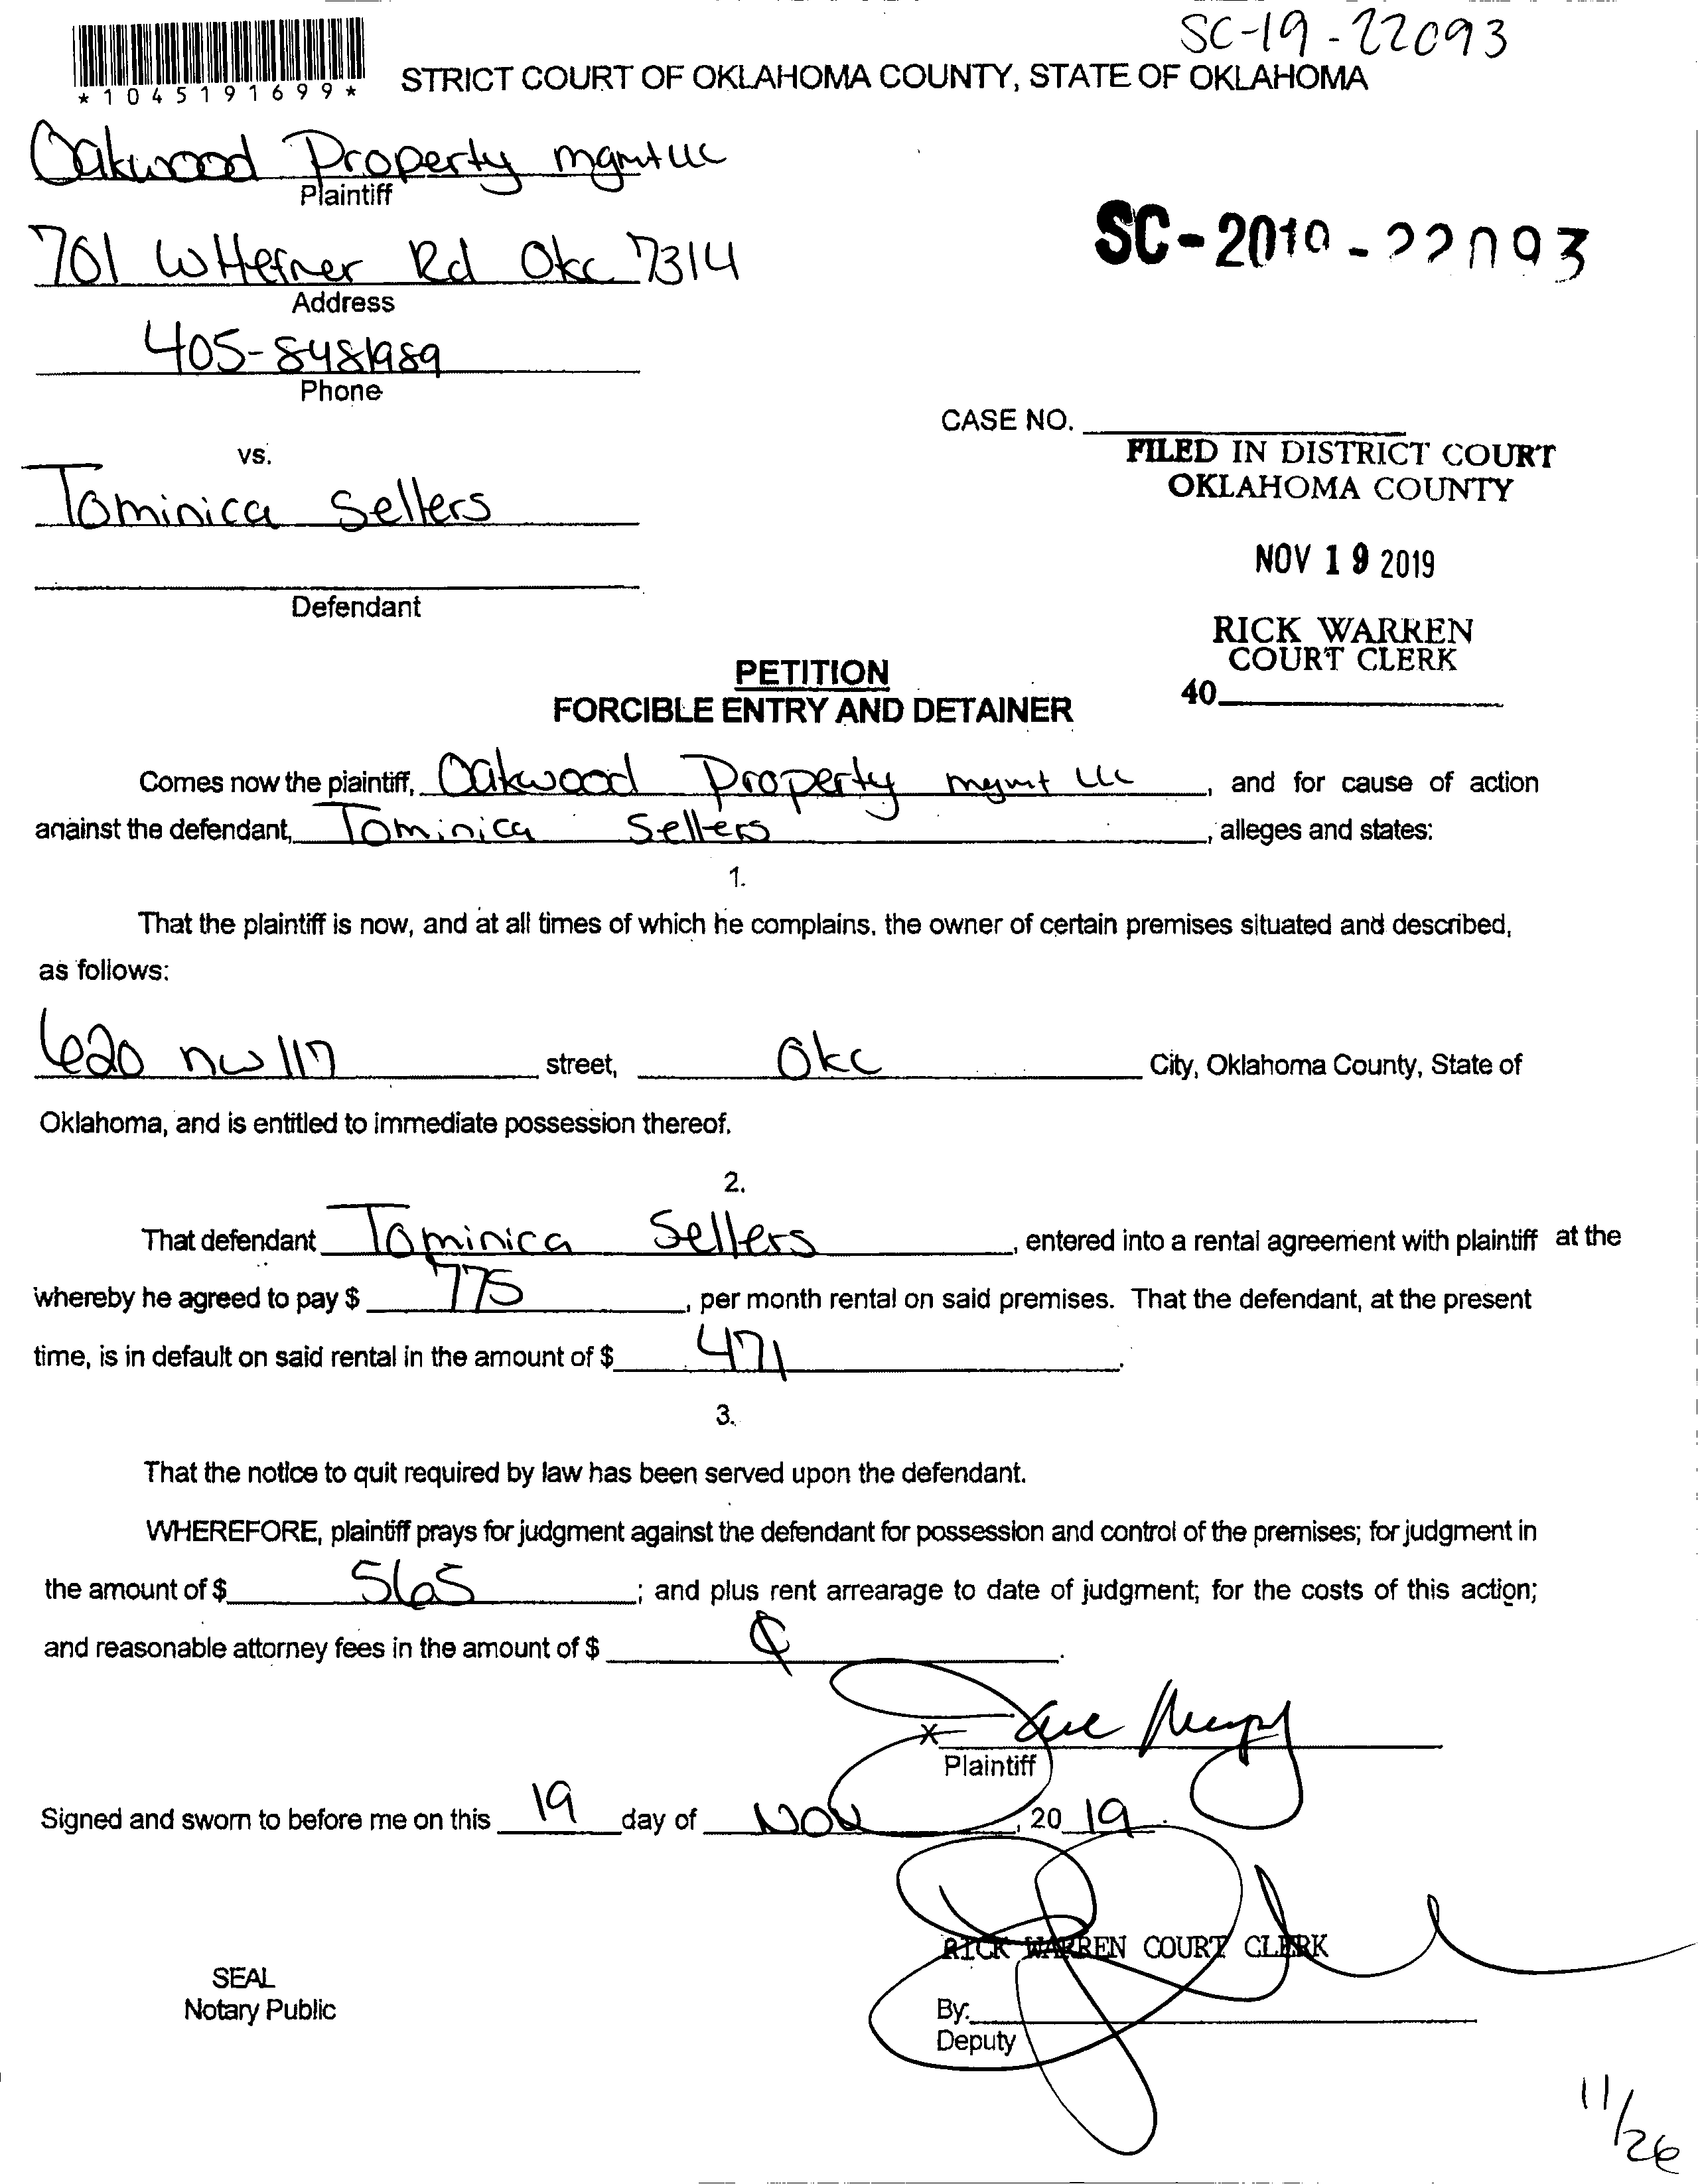 SC-19-22093
*1045191699*
STRICT COURT OF OKLAHOMA COUNTY, STATE OF OKLAHOMA
Oakwood Property mgmt llc
Plaintiff
SC-2019-22093
701 W Hefner Rd Okc 7314
Address
405-8481989
Phone
CASE NO.
FILED IN DISTRICT COURT
OKLAHOMA COUNTY
vs.
Tominica Sellers
NOV 19 2019
Defendant
RICK WARREN
COURT CLERK
40
PETITION
FORCIBLE ENTRY AND DETAINER
Comes now the plaintiff, Oakwood Property mgmt llc, and for cause of action
against the defendant, Tominica Sellers, alleges and states:
1.
That the plaintiff is now, and at all times of which he complains, the owner of certain premises situated and described,
as follows:
620 nw 117 street, Okc City, Oklahoma County, State of
Oklahoma, and is entitled to immediate possession thereof.
2.
That defendant Tominica Sellers, entered into a rental agreement with plaintiff at the
whereby he agreed to pay $ 775, per month rental on said premises. That the defendant, at the present
time, is in default on said rental in the amount of $ 471.
3.
That the notice to quit required by law has been served upon the defendant.
WHEREFORE, plaintiff prays for judgment against the defendant for possession and control of the premises; for judgment in
the amount of $ 565; and plus rent arrearage to date of judgment; for the costs of this action;
and reasonable attorney fees in the amount of $
x
Plaintiff
Signed and sworn to before me on this 19 day of Nov, 20 19.
RICK WARREN COURT CLERK
SEAL
Notary Public
By:
Deputy
11/26